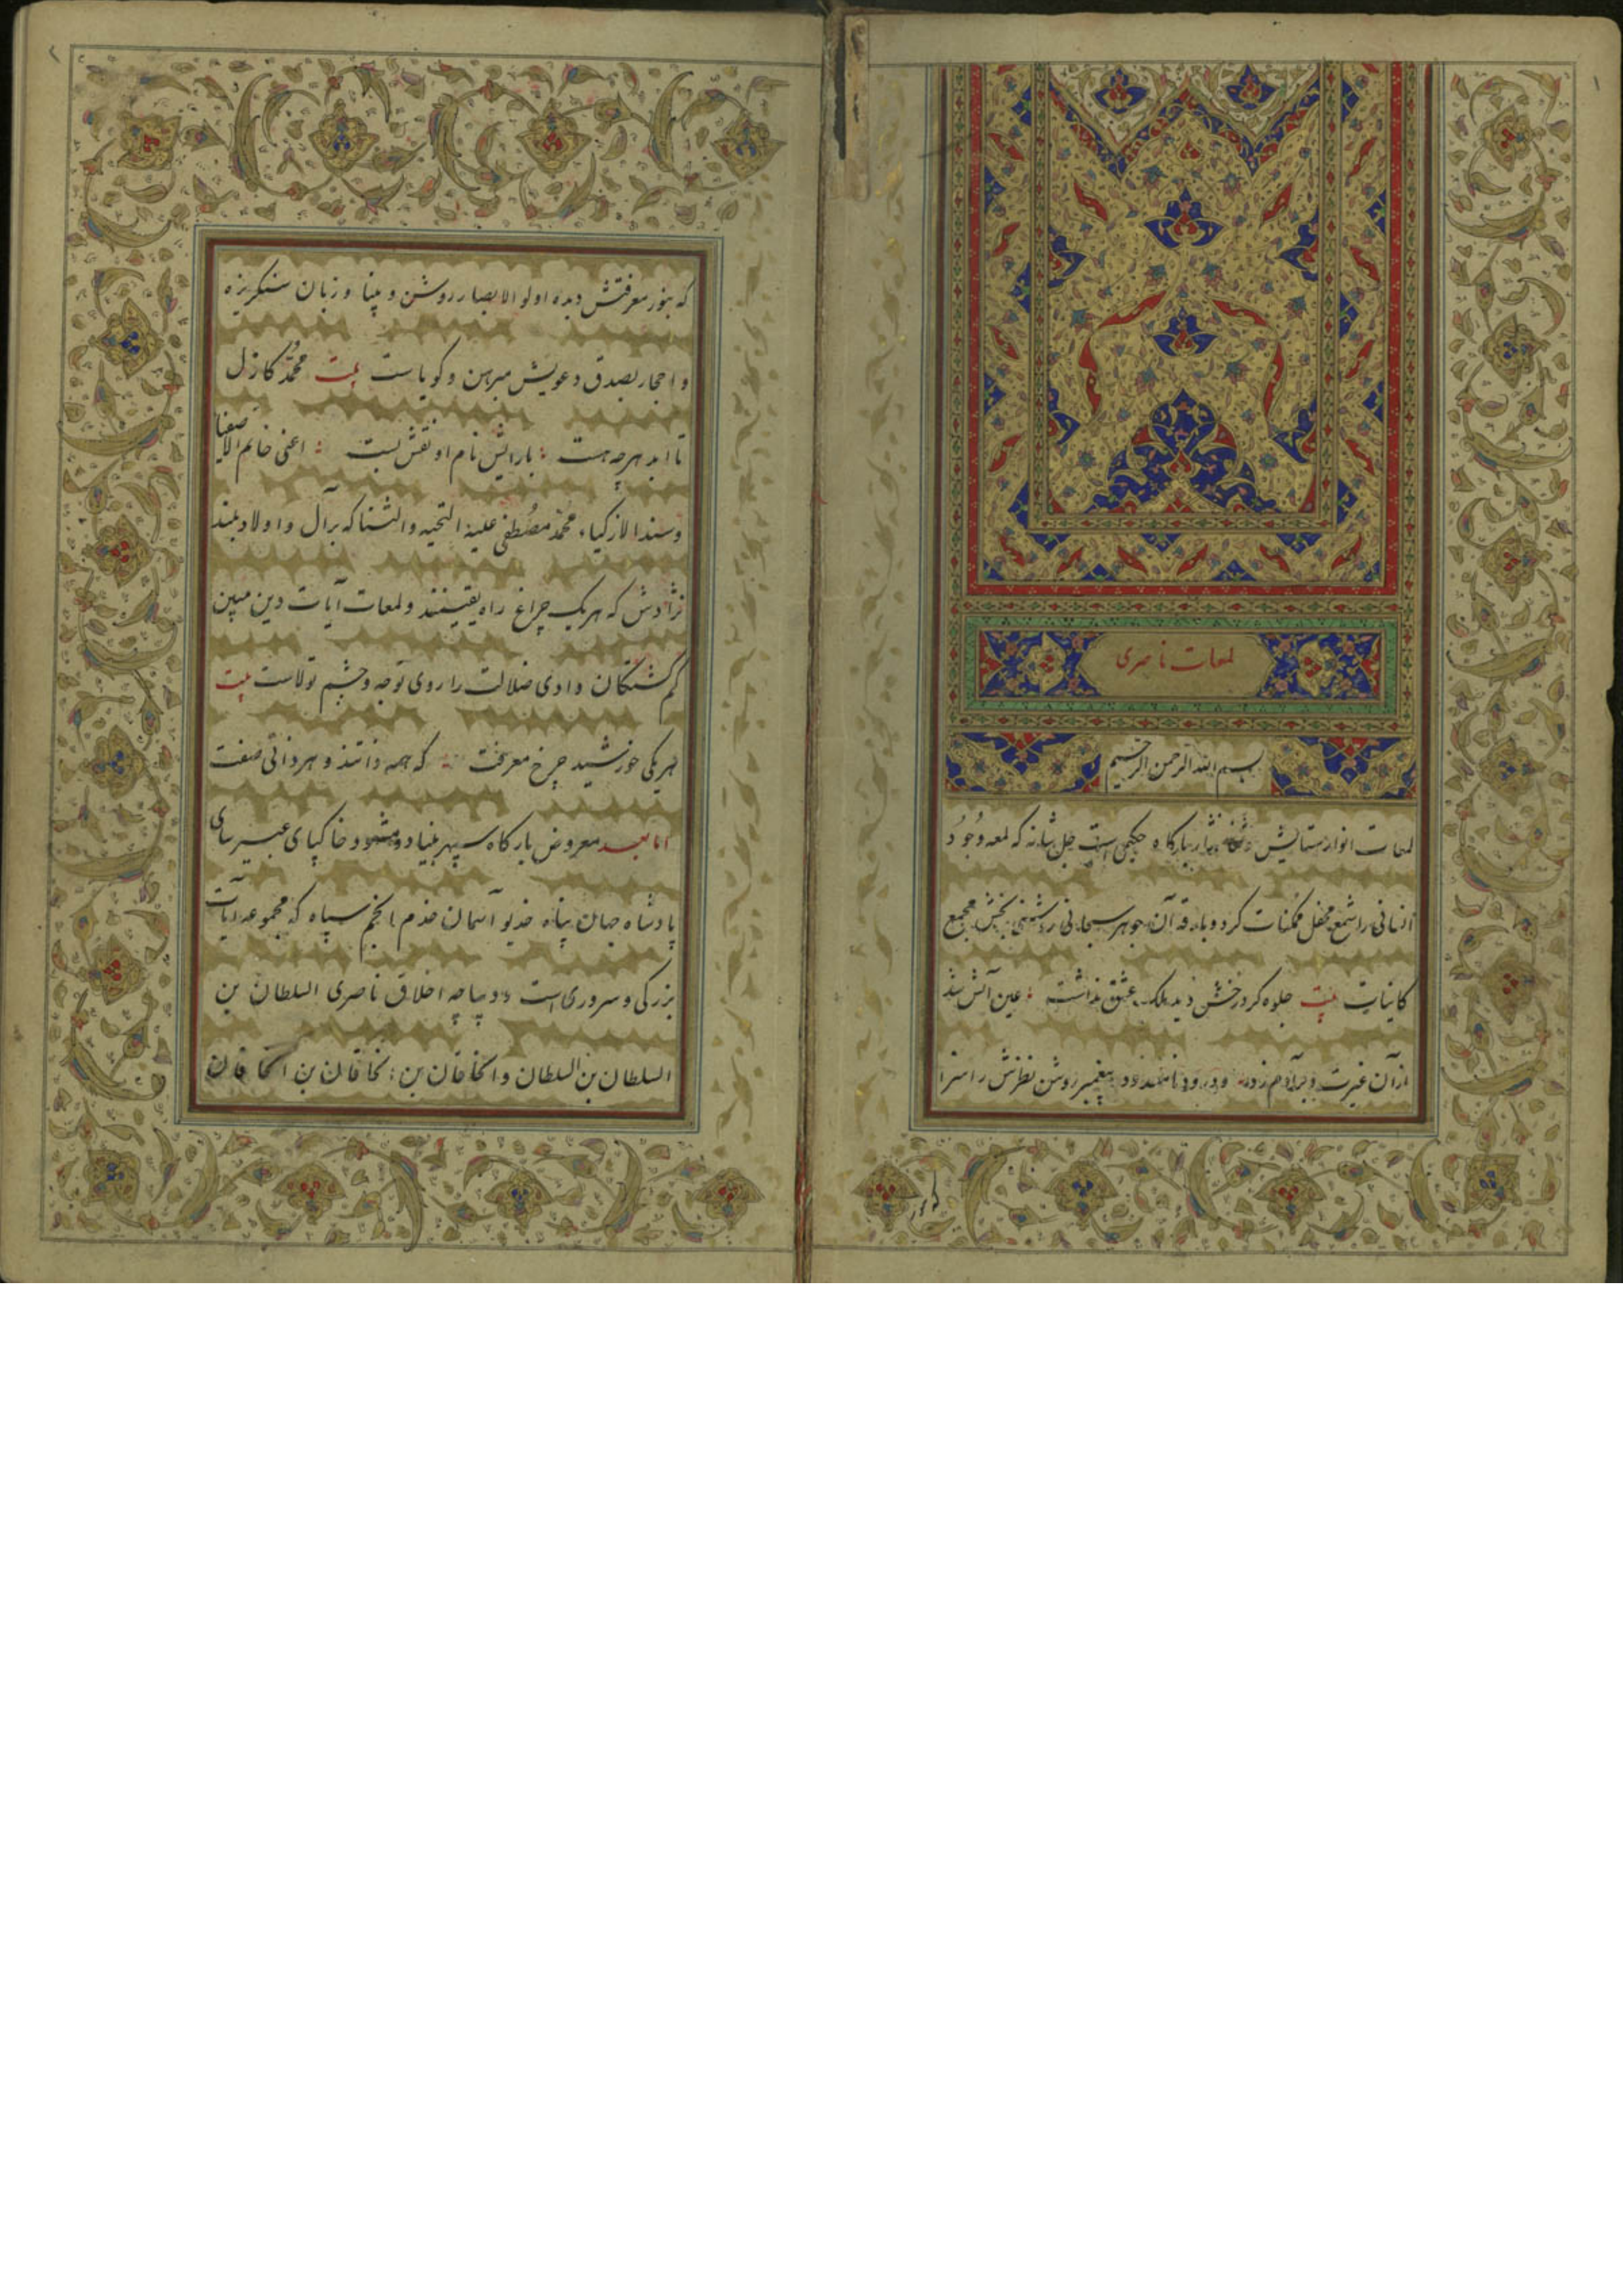 لمعات ناصری
بسم الله الرحمن الرحیم
لمعات انوار ستایش نثار بارگاه حکیمی است جل شانه که لمعه وجود
انسانی را شمع محفل ممکنات کرد و بارقه آن جوهر سبحانی روشنی بخش مجمع
کاینات بیت جلوه کرد رخش دید ملک عشق نداشت عین آتش شد
ازآن غیرت و بر آدم زد و درود نامعدود پیغمبر روشن نظرش را سزا
که بنور معرفتش دیده اولو الابصار روشن و بینا و زبان سنگریزه
و احجار بصدق دعویش مبرهن و کویاست بیت محمد کازل
تا ابد هرچه هست بارایش نام او نقش بست اعنی خاتم الاصفیا
وسند الازکیاء محمد مصطفی علیه التحیه والثنا که برآل و اولاد بلند
نژادش که هریک چراغ راه یقینند ولمعات آیات دین مبین
کم کشتکان وادی ضلالت را روی توجه و چشم تولاست بیت
هریکی خورشید چرخ معرفت که همه ذاتند و هر ذاتی صفت
اما بعد معروض بارکاه سپهر بنیاد ومشهود خاکپای عبیرسای
پادشاه جهان پناه خدیو آسمان خدم انجم سپاه که مجموعه آیات
بزرکی و سروری است و دیباچه اخلاق ناصری السلطان بن
السلطان بن السلطان والخاقان بن الخاقان بن الخاقان